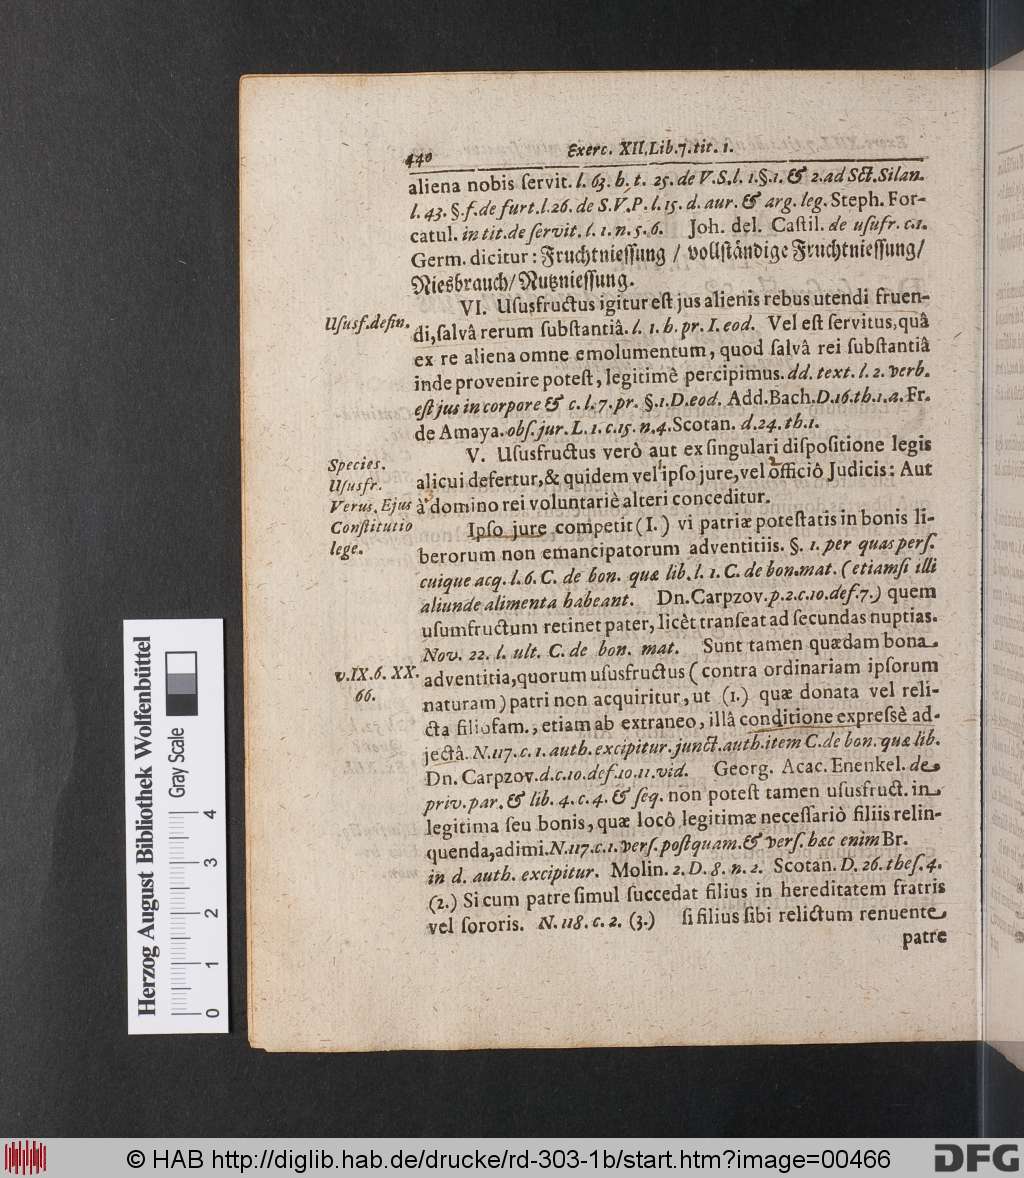 440 Exerc. XII. Lib. 7. tit. 1.
aliena nobis ſervit. l. 63. h. t. 25. de V. S. l. 1. §. 1. & 2. ad Sct. Silan.
l. 43. §. f. de furt. l. 26. de S. V. P. l. 15. d. aur. & arg. leg. Steph. For-
catul. in tit. de ſervit. l. 1. n. 5. 6. Joh. del. Caſtil. de uſufr. c. 1.
Germ. dicitur: Fruchtnieſſung / vollſtändige Fruchtnieſſung/
Niesbrauch/ Nutznieſſung.
Uſusf. defin.
VI. Uſusfructus igitur eſt jus alienis rebus utendi fruen-
di, ſalvâ rerum ſubſtantiâ. l. 1. h. pr. I. eod. Vel eſt ſervitus, quâ
ex re aliena omne emolumentum, quod ſalvâ rei ſubſtantiâ
inde provenire poteſt, legitimè percipimus. dd. text. l. 2. verb.
eſt jus in corpore & c. l. 7. pr. §. 1. D. eod. Add. Bach. D. 16. th. 1. a. Fr.
de Amaya. obſ. jur. L. 1. c. 15. n. 4. Scotan. d. 24. th. 1.
Species.
Uſusfr.
Verus. Ejus
Conſtitutio
lege.
V. Uſusfructus verò aut ex ſingulari diſpoſitione legis
alicui defertur, & quidem vel ipſo jure, vel officiô Judicis: Aut
à domino rei voluntariè alteri conceditur.
Ipſo jure competit (I.) vi patriæ poteſtatis in bonis li-
berorum non emancipatorum adventitiis. §. 1. per quas perſ.
cuique acq. l. 6. C. de bon. quæ lib. l. 1. C. de bon. mat. (etiamſi illi
aliunde alimenta habeant. Dn. Carpzov. p. 2. c. 10. def. 7.) quem
uſumfructum retinet pater, licèt tranſeat ad ſecundas nuptias.
Nov. 22. l. ult. C. de bon. mat. Sunt tamen quædam bona
v. IX. 6. XX.
66.
adventitia, quorum uſusfructus (contra ordinariam ipſorum
naturam) patri non acquiritur, ut (1.) quæ donata vel reli-
cta filiofam., etiam ab extraneo, illâ conditione expreſsè ad-
jectâ. N. 117. c. 1. auth. excipitur. junct. auth. item C. de bon. quæ lib.
Dn. Carpzov. d. c. 10. def. 10. 11. vid. Georg. Acac. Enenkel. de
priv. par. & lib. 4. c. 4. & ſeq. non poteſt tamen uſusfruct. in
legitima ſeu bonis, quæ locô legitimæ neceſſariò filiis relin-
quenda, adimi. N. 117. c. 1. verſ. poſtquam. & verſ. hæc enim Br.
in d. auth. excipitur. Molin. 2. D. 8. n. 2. Scotan. D. 26. theſ. 4.
(2.) Si cum patre ſimul ſuccedat filius in hereditatem fratris
vel ſororis. N. 118. c. 2. (3.) ſi filius ſibi relictum renuente
patre
Herzog August Bibliothek Wolfenbüttel
Gray Scale
0 1 2 3 4
© HAB http://diglib.hab.de/drucke/rd-303-1b/start.htm?image=00466
DFG